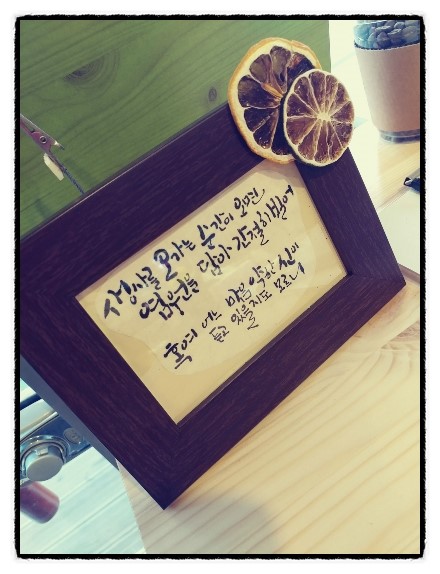 생사를 오가는 순간이 오면
염원을 담아 간절히 빌어
혹여 어느 마음 약한 신이
듣고 있을지도 모르니